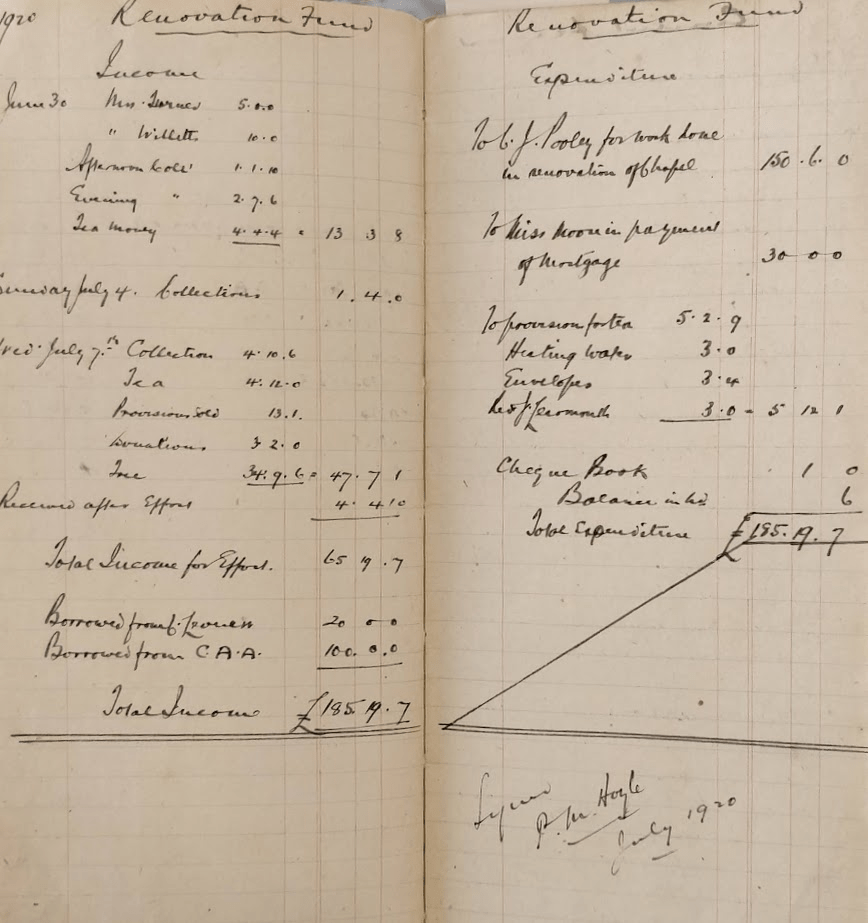 1920 Renovation Fund
Income
June 30 Mrs. Turner 5.0.0
" Willetts 10.0
Afternoon Coll' 1.1.10
Evening " 2.7.6
Tea Money 4.4.4 = 13 3 8
Sunday July 4. Collections 1.4.0
Wed. July 7.th Collection 4.10.6
Tea 4.12.0
Provisions Sold 13.1.
Donations 3 2.0
Tree 34.9.6 = 47.7 1
Received after Effort 4.4.10
Total Income for Effort. 65 19.7
Borrowed from 20 0 0
Borrowed from C.A.A. 100.0.0
Total Income £185.19.7
Renovation Fund
Expenditure
To C. J. Pooley for work done
in renovation of Chapel 150.6.0
To Miss Moon in payment
of Mortgage 30 0 0
To provision for tea 5.2.9
Heating Water 3.0
Envelopes 3.4
3.0 = 5 12 1
Cheque Book 1 0
Balance in hd 6
Total Expenditure £185.19.7
Signed
P. M. Hoyle
July 1920